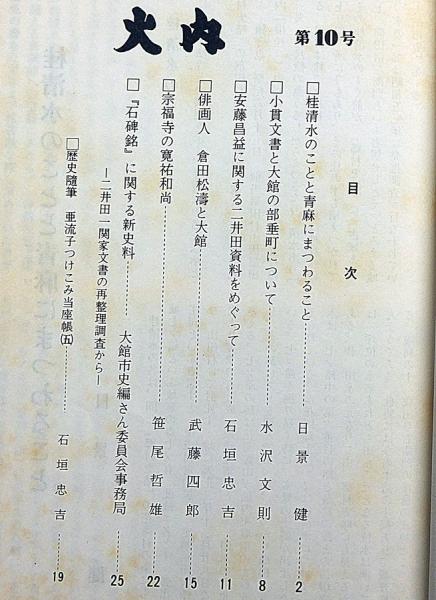 火内 第10号
目次
□桂清水のことと青麻にまつわること……日景 健……2
□小貫文書と大館の部垂町について……水沢文則……8
□安藤昌益に関する二井田資料をめぐって……石垣忠吉……11
□俳画人 倉田松濤と大館……武藤四郎……15
□宗福寺の寛祐和尚……笹尾哲雄……22
□『石碑銘』に関する新史料……大館市史編さん委員会事務局……25
―二井田一関家文書の再整理調査から―
□歴史随筆 亜流子つけこみ当座帳(五)……石垣忠吉……19